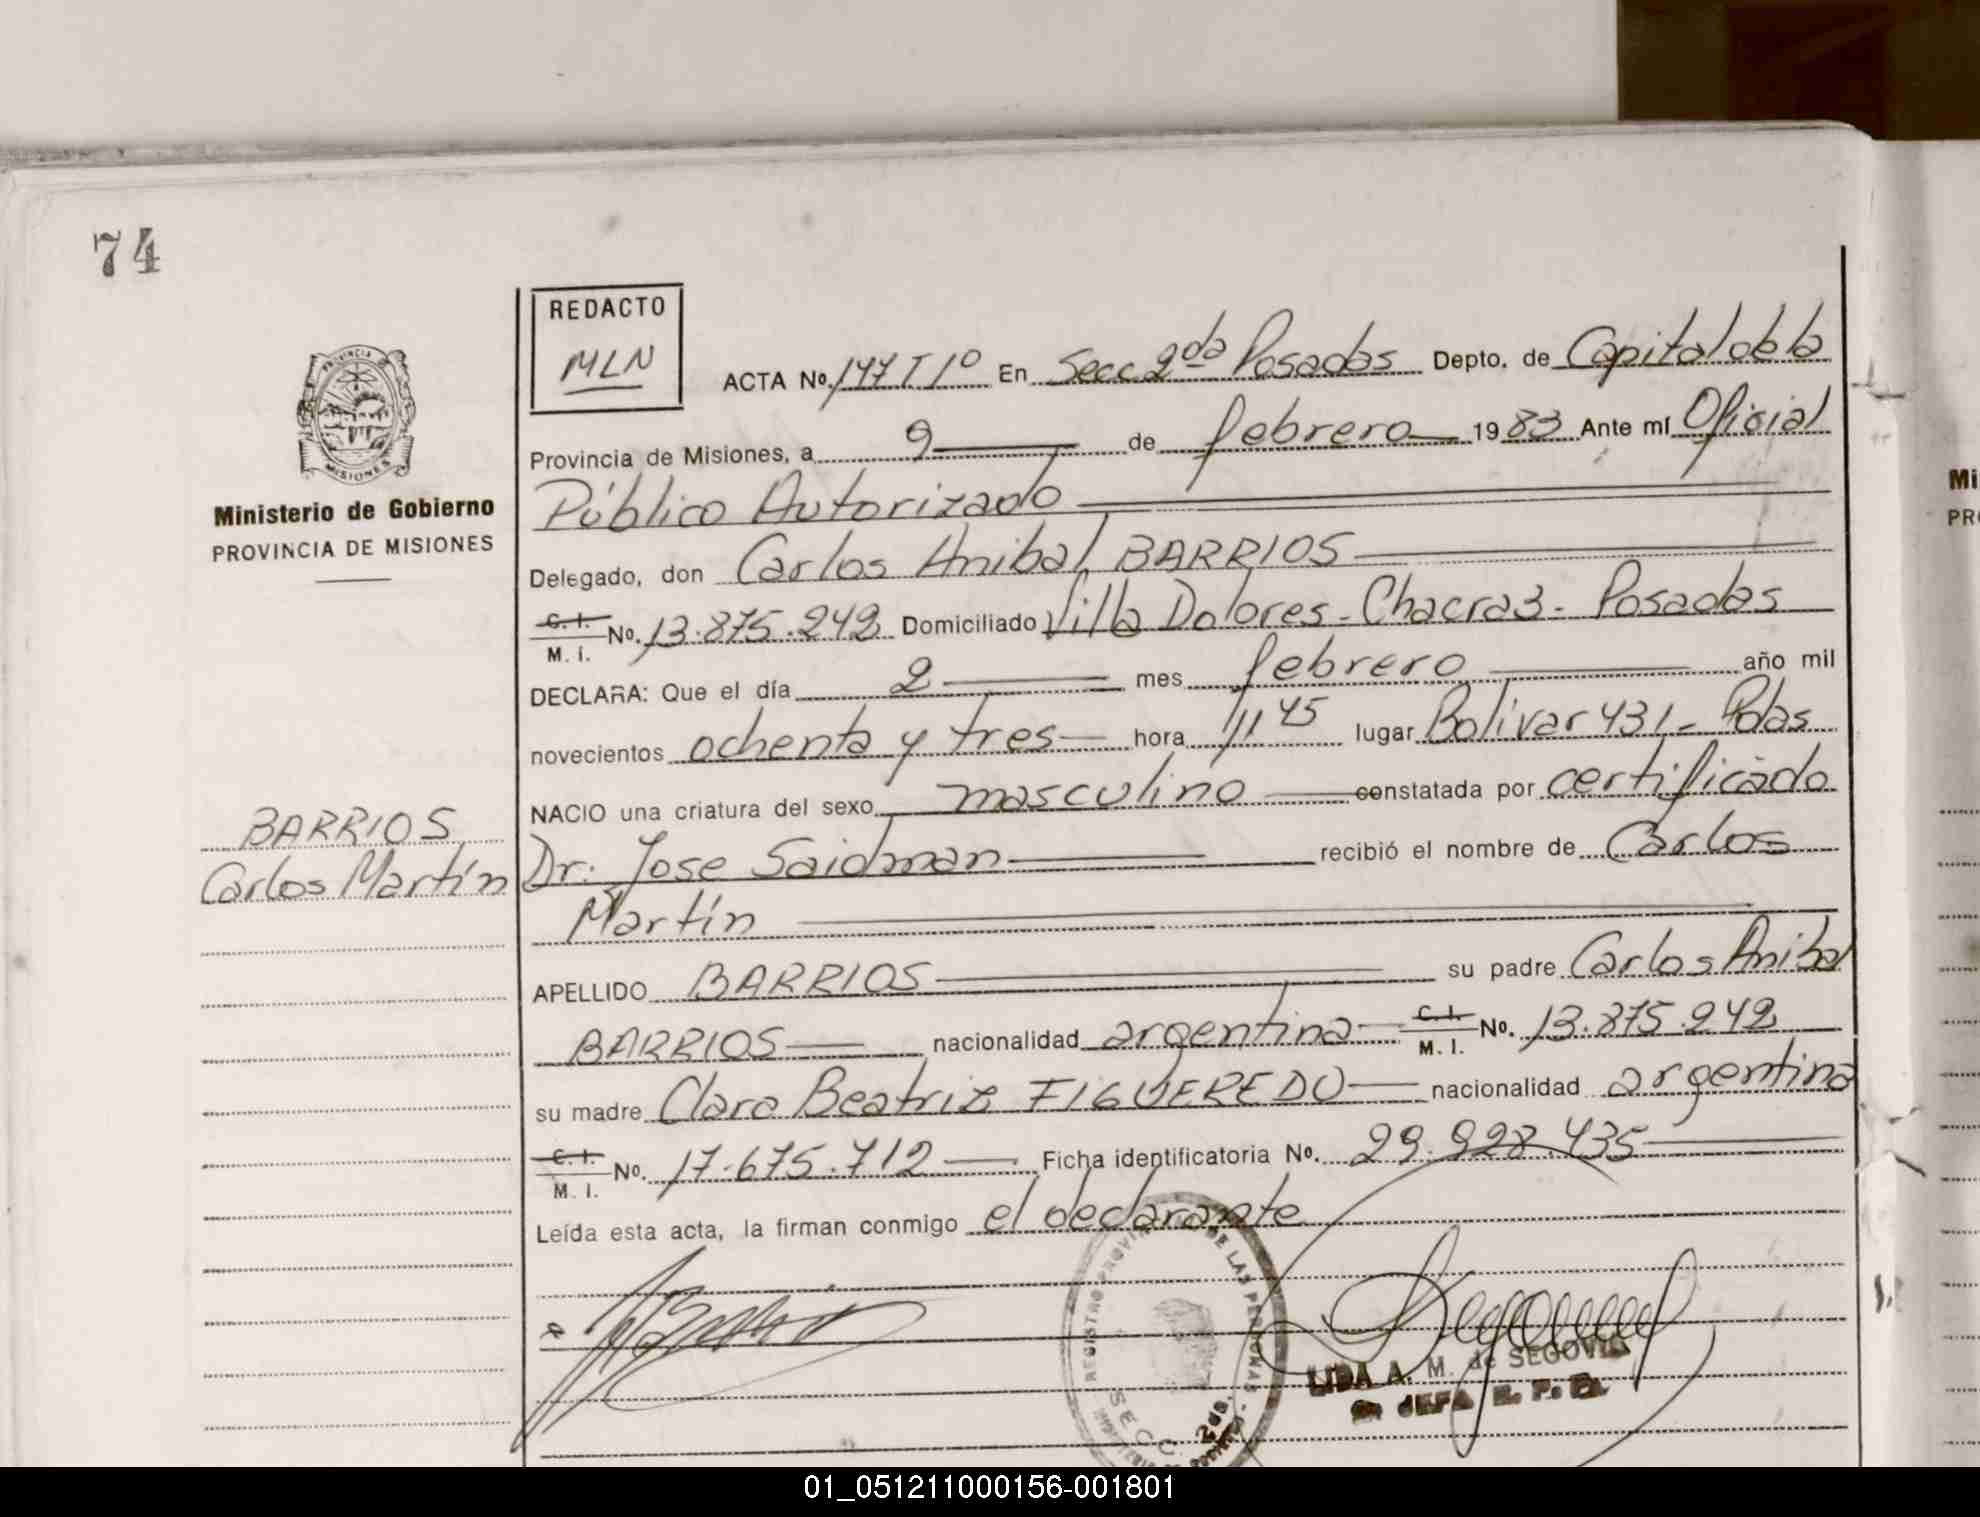 74
REDACTO
MLN
PROVINCIA DE
MISIONES
Ministerio de Gobierno
PROVINCIA DE MISIONES
ACTA No. 147 T 1º En Secc 2da Posadas Depto. de Capital de la
Provincia de Misiones, a 9 de febrero 1983 Ante mí Oficial
Público Autorizado
Delegado, don Carlos Anibal BARRIOS
C. I. M. I. No. 13.875.242 Domiciliado Villa Dolores - Chacra 3 - Posadas
DECLARA: Que el día 2 mes febrero año mil
novecientos ochenta y tres hora 11 45 lugar Bolívar 431 - Pdas
NACIO una criatura del sexo masculino constatada por certificado
Dr. Jose Saidman recibió el nombre de Carlos
Martín
BARRIOS
Carlos Martín
APELLIDO BARRIOS su padre Carlos Anibal
BARRIOS nacionalidad argentina C. I. M. I. No. 13.875.242
su madre Clara Beatriz FIGUEREDO nacionalidad argentina
C. I. M. I. No. 17.675.712 Ficha identificatoria No. 29.928.435
Leída esta acta, la firman conmigo el declarante
REGISTRO PROVINCIAL DE LAS PERSONAS
SECC. 2da.
LIDA A. M. de SEGOVIA
JEFA
Mi
PRO
01_051211000156-001801